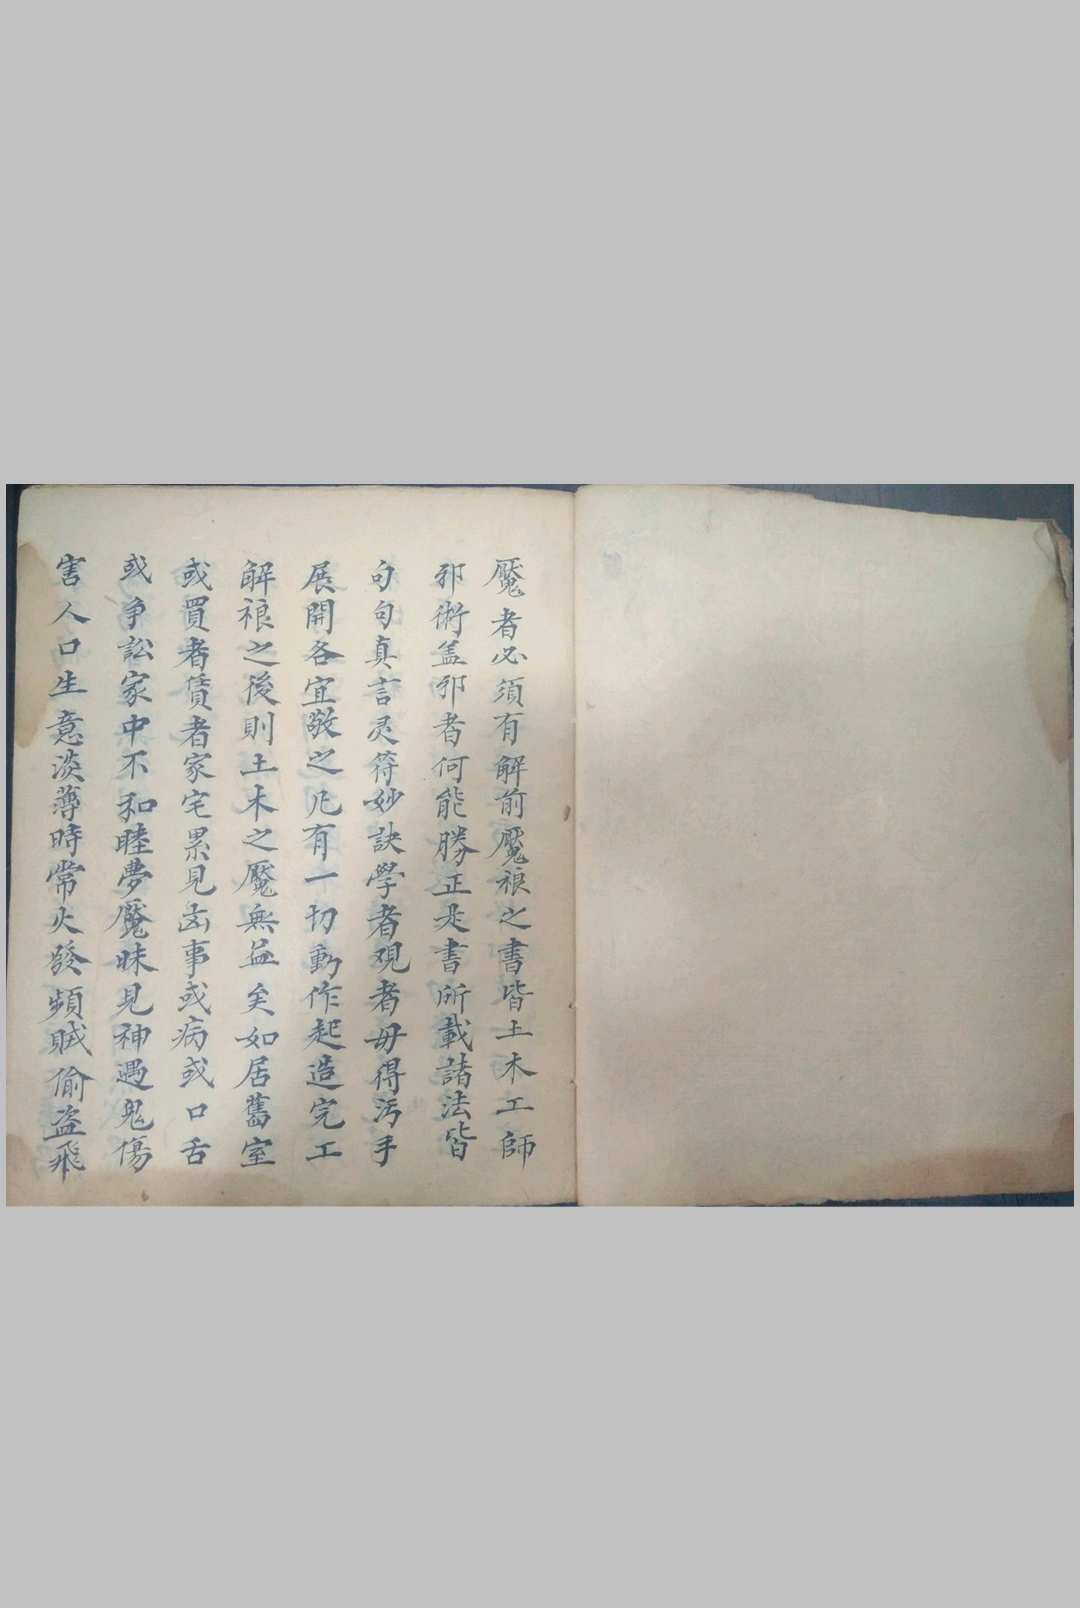 魘者必須有解前魘禳之書皆土木工師
邪術盖邪者何能勝正是書所載諸法皆
句句真言灵符妙訣學者观者毋得污手
展開各宜敬之凡有一切動作起造完工
解禳之後則土木之魘無益矣如居舊室
或買者賃者家宅累見凶事或病或口舌
或争訟家中不和睦夢魘昧見神遇鬼傷
害人口生意淡薄時常火發頻賊偷盗飛